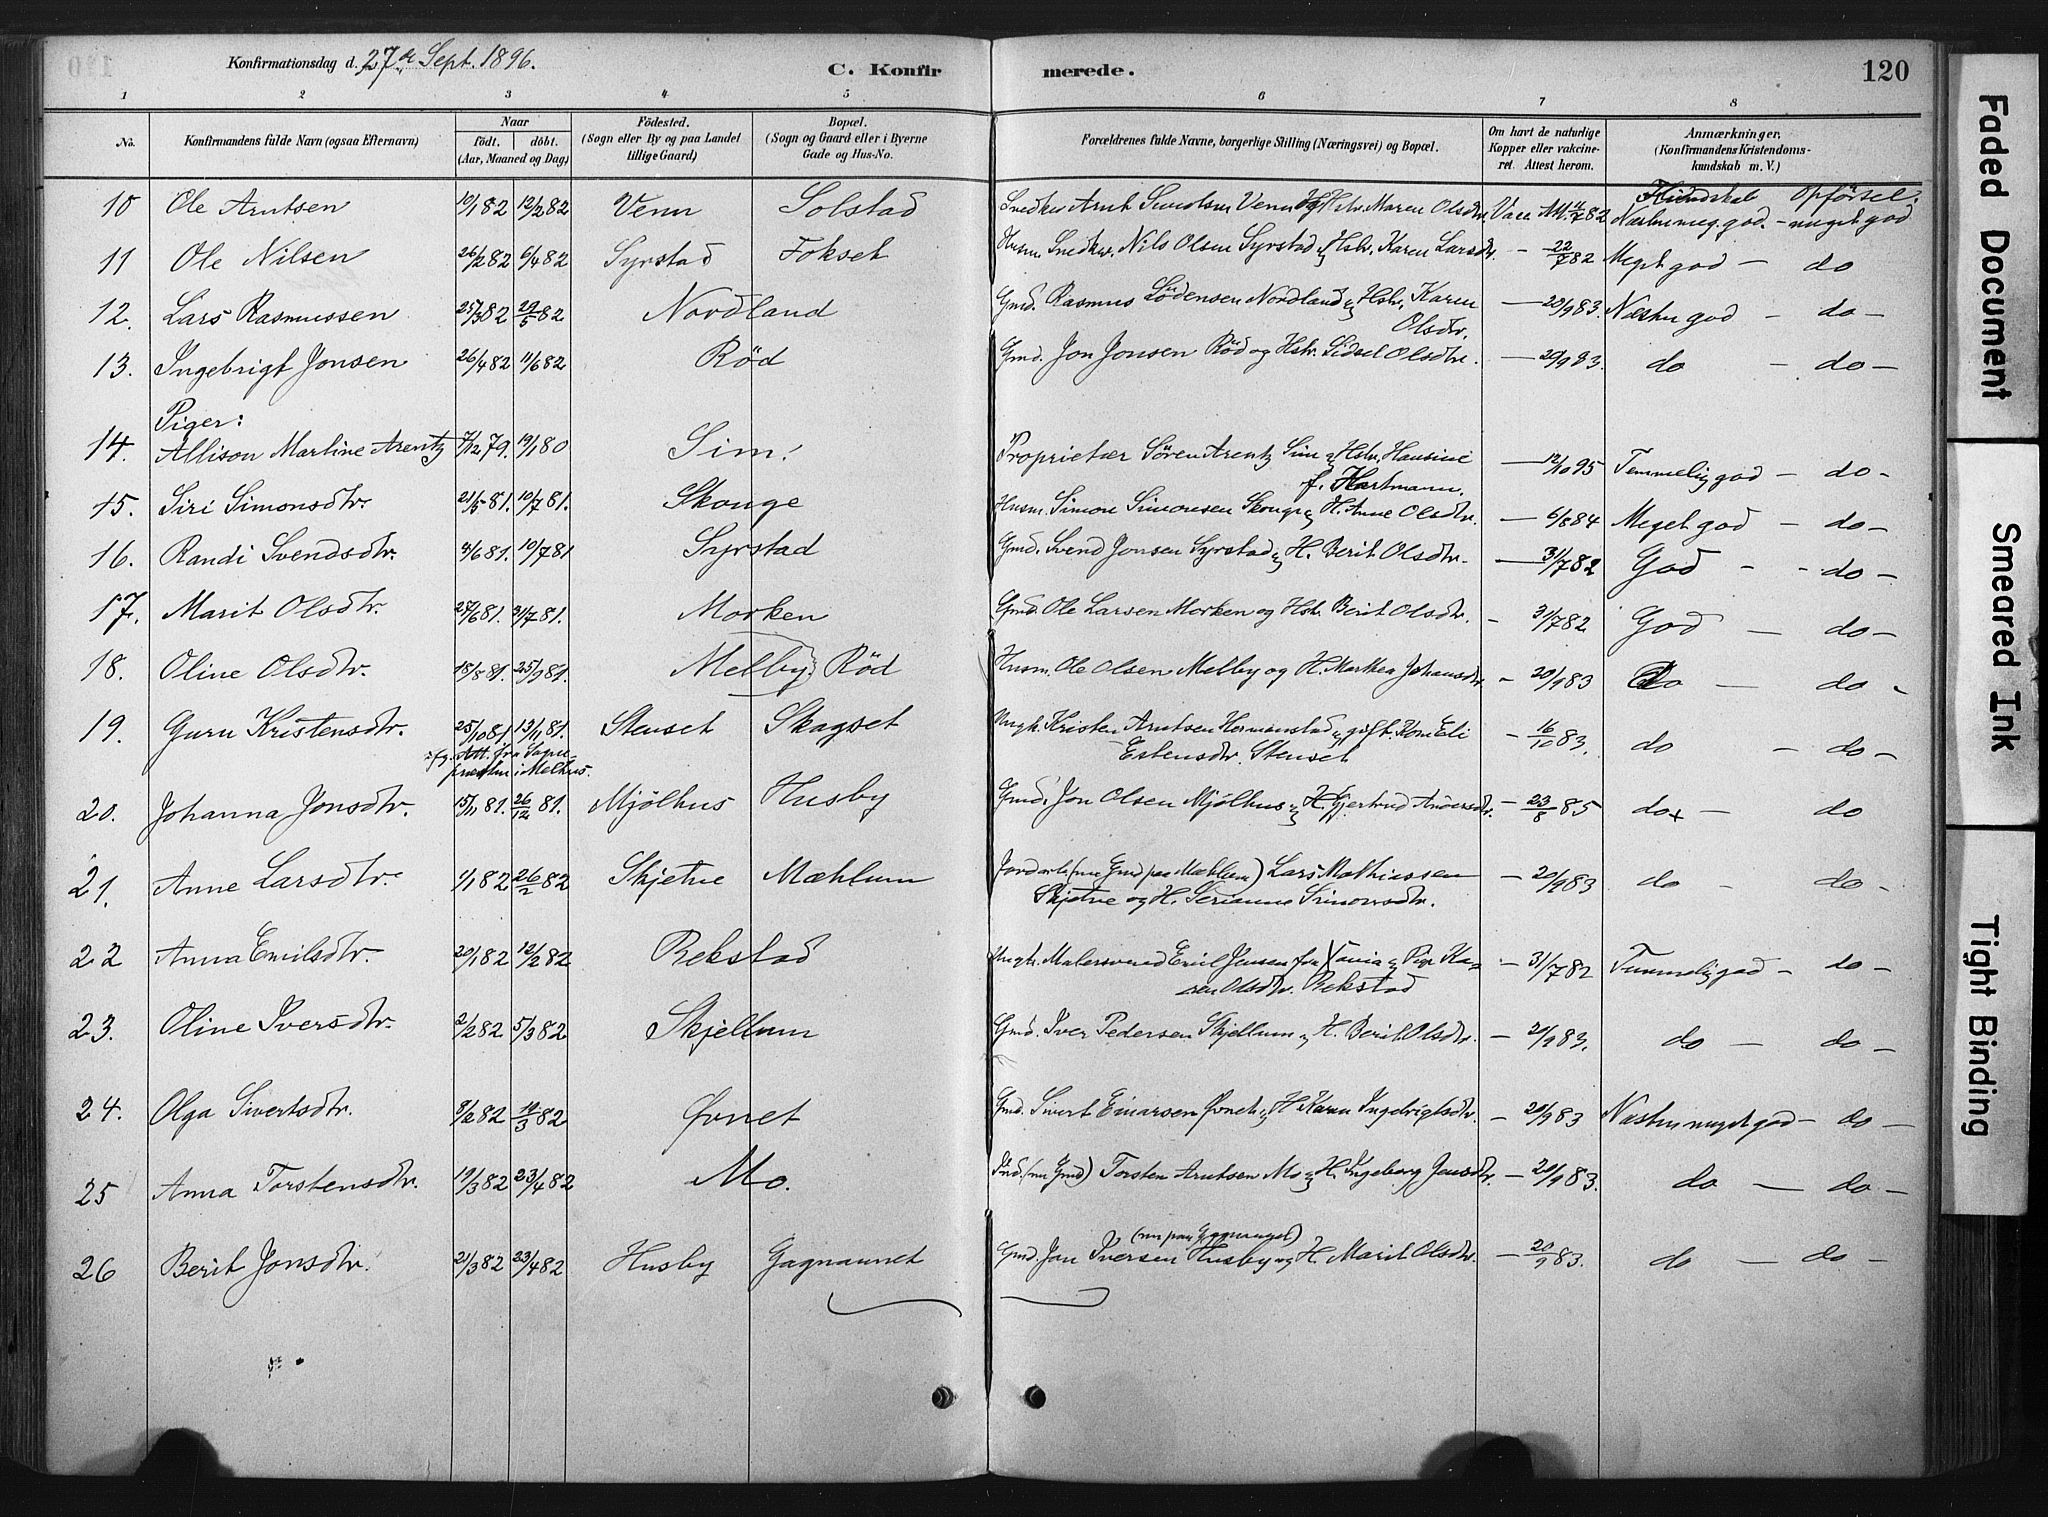 Konfirmationsdag d. 27de Sept. 1896.
C. Konfirmerede.
120
1 2 3 4 5 6 7 8
No. Konfirmandens fulde Navn (ogsaa Efternavn) Naar födt. döbt. (Aar, Maaned og Dag) Födested. (Sogn eller By og paa Landet tillige Gaard) Bopæl. (Sogn og Gaard eller i Byerne Gade og Hus-No. Forældrenes fulde Navne, borgerlige Stilling (Næringsvei) og Bopæl. Om havt de naturlige Kopper eller vakcineret. Attest herom. Anmærkninger. (Konfirmandens Kristendomskundskab m. V.)
Kundskab Opförsel.
10 Ole Arntsen 10/1 82 12/2 82 Venn Solstad Snedker Arnt Sivertsen Venn og Hstr. Maren Olsdtr. Vacc. Att. 4/7 82 Næsten meg. god. - meget god
11 Ole Nilsen 26/2 82 6/4 82 Syrstad Fokset Husm. Snedker. Nils Olsen Syrstad og Hstr. Karen Larsdtr. - 22/7 82 Meget god - do
12. Lars Rasmussen 25/3 82 29/5 82 Nordland Gmd. Rasmus Lödensen Nordland og Hstr. Karen Olsdtr. - 20/9 83. Næsten god - do -
13. Ingebrigt Jonsen 26/4 82 11/6 82 Röd Gmd. Jon Jonsen Röd og Hstr. Sidsel Olsdtr. - 20/9 83. do - do -
Piger:
14. Allison Martine Arentz 7/12 79. 19/1 80 Sim. Proprietær Sören Arentz Sim og Hstr. Hansine f. Hartmann. - 12/10 95 Temmelig god - do -
15. Siri Simonsdtr. 21/5 81. 10/7 81. Skouge Husm. Simon Simonsen Skouge og H. Anne Olsdtr. - 6/8 84 Meget god - do -
16. Randi Svendsdtr. 4/6 81. 10/7 81 Syrstad Gmd. Svend Jonsen Syrstad og H. Berit Olsdtr. - 31/7 82 God - - do -
17. Marit Olsdtr. 27/6 81. 31/7 81. Morken Gmd. Ole Larsen Morken og Hstr. Berit Olsdtr. - 31/7 82 God - do -
18. Oline Olsdtr. 18/8 81. 25/9 81. Melby Röd Husm. Ole Olsen Melby og H. Marthea Johansdtr - 20/9 83 Do - do -
19. Guru Kristensdtr. 25/10 81 13/11 81. Stenset Skagset Ungk. Kristen Arntsen Hermanstad og gift. Kone Eli Estensdtr. Stenset - 16/10 83. do - do -
Att. fra Sognepresten i Melhus.
20. Johanna Jonsdtr. 15/11 81. 26/12 81. Mjölhus Husby Gmd. Jon Olsen Mjölhus og H. Gjertrud Andersdtr. - 23/8 85 do x - do
21. Anne Larsdtr. 1/1 82 26/2 82 Skjetne Mæhlum Jordarb. (nu Gmd paa Mæhlum) Lars Mathiassen Skjetne og H. Serianne Simonsdtr. - 20/9 83 do - do -
22 Anna Emilsdtr. 20/1 82 12/2 82 Rekstad Ungk. Malersvend Emil Jensen fra Xania og Pige Karen Olsdtr. Rekstad - 31/7 82 Temmelig god - do -
23. Oline Iversdtr. 2/2 82 5/3 82 Skjellum Gmd. Iver Pedersen Skjellum og H. Berit Olsdtr. - 21/9 83. do - do -
24. Olga Sivertsdtr. 8/2 82 19/3 82 Övnet Gmd. Sivert Einarsen Övnet og H. Karen Ingebrigtsdtr. - 20/9 83 Næsten meget god - do -
25 Anna Torstensdtr. 19/3 82 23/4 82 Mo. Ind. (nu Gmd) Torsten Arntsen Mo og H. Ingeborg Jensdtr. - 20/9 83. do - do -
26 Berit Jonsdtr. 21/3 82 23/4 82 Husby Gagnaunet Gmd. Jon Iversen Husby (nu paa Gagnaunet) og H. Marit Olsdtr. - 20/9 83. do - do -
Faded Document
Smeared Ink
Tight Binding